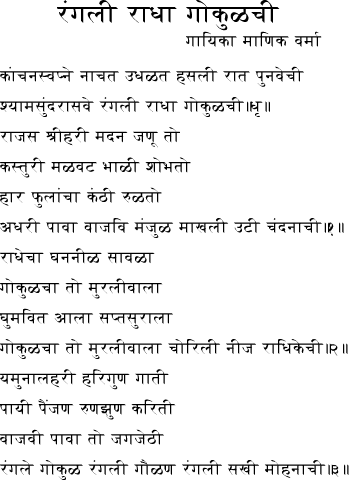 रंगली राधा गोकुळची
गायिका माणिक वर्मा
कांचनस्वप्ने नाचत उधळत हसली रात पुनवेची
श्यामसुंदरासवे रंगली राधा गोकुळची॥धृ॥
राजस श्रीहरी मदन जणू तो
कस्तुरी मळवट भाळी शोभतो
हार फुलांचा कंठी रुळतो
अधरी पावा वाजवि मंजुळ माखली उटी चंदनाची॥१॥
राधेचा घननीळ सावळा
गोकुळचा तो मुरलीवाला
घुमवित आला सप्तसुराला
गोकुळचा तो मुरलीवाला चोरिली नीज राधिकेची॥२॥
यमुनालहरी हरिगुण गाती
पायी पैंजण रुणझुण करिती
वाजवी पावा तो जगजेठी
रंगले गोकुळ रंगली गौळण रंगली सखी मोहनाची॥३॥